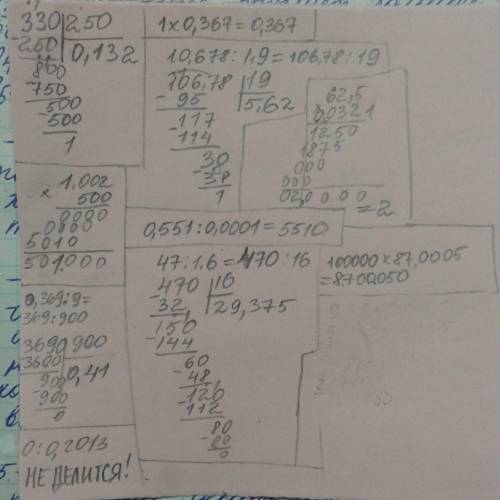 330 250
-250 0,132
800
-750
500
-500
1
1 x 0,367 = 0,367
10,678 : 1,9 = 106,78 : 19
106,78 19
-95 5,62
117
-114
38
-38
1
62,5
0,0321
1250
1875
000
000
020000
= 2
x 1,002
500
0000
0000
5010
501.000
0,551 : 0,0001 = 5510
0,369 : 9 =
369 : 900
3690 900
3600 0,41
900
-900
0
47 : 1,6 = 470 : 16
-470 16
32 29,375
150
-144
60
-48
120
-112
80
-80
0
100000 x 87,0005
= 8.700.050
0 : 0,2013
НЕ ДЕЛИТСЯ!